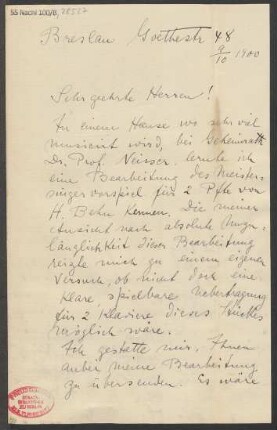 55 Nachl 100/B,
Breslau Goethestr 48
9/10 1900
Sehr geehrte Herren!
In einem Hause wo sehr viel
musiciert wird, bei Geheimrath
Dr. Prof Neisser lernte ich
eine Bearbeitung des Meister-
singervorspiel für 2 Pfte von
H. Behn kennen. Die meiner
Ansicht nach absolute Unzu-
länglichkeit dieser Bearbeitung
reizte mich zu einem eigenen
Versuch, ob nicht doch eine
klare spielbare Uebertragung
für 2 Klaviere dieses Stückes
möglich wäre.
Ich gestatte mir, Ihnen
anbei meine Bearbeitung
zu übersenden. Es wäre